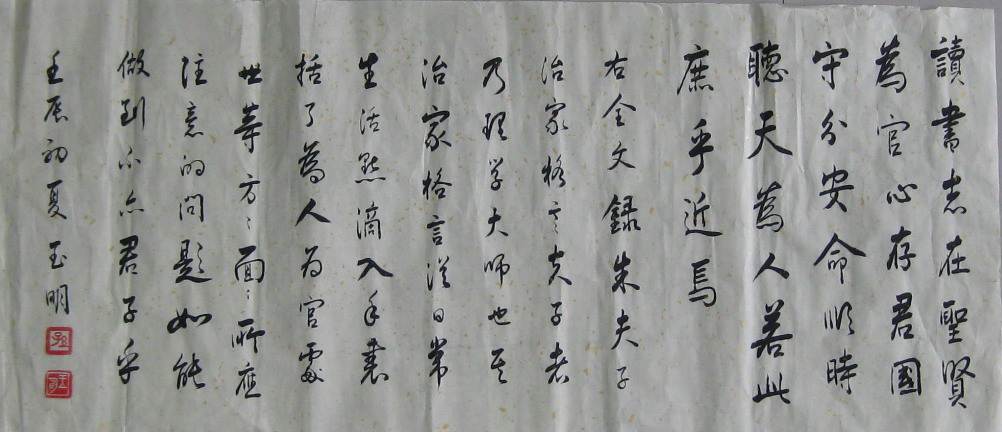 讀書志在聖賢
為官心存君國
守分安命順時
聽天為人若此
庶乎近焉
右全文録朱夫子
治家格言夫子者
乃理学大师也其
治家格言從日常
生活點滴入手囊
括了為人为官處
世等方々面々所應
注意的问題如能
做到不亦君子乎
壬辰初夏玉明